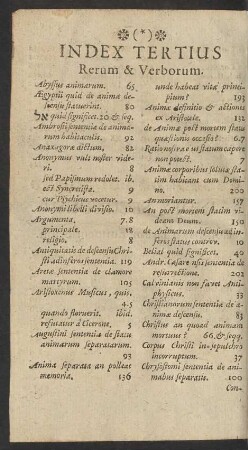 ❊(*)❊
INDEX TERTIUS
Rerum & Verborum.
Abyssus animarum. 65
Ægyptii quid de anima de-
scensu statuerint. 80
אל quid significet. 20 & seq.
Ambrosii sententia de anima-
rum habitaculis. 92
Anaxagoræ dictum, 82
Anonymus vult nosser vide-
ri. 8
sed Papissimum redolet. ib.
est Syncretista. 9
cur Psychicus vocetur. 9
Anonymi libelli divisio. 10
Argumenta, 7.8
principale. 18
religio. 8
Antiquitatis de descensu Chri-
sti ad inferos sententia. 119
Aretæ sententia de clamore
martyrum. 105
Aristoxenus Musicus, quis.
4.5
quando floruerit. ibid.
refutatur à Cicerone, 5
Augustini sententia de statu
animarum separatarum.
93
Anima separata an polleat
memoria. 136
unde habeat vitæ princi-
pium? 193
Animæ definitio & actiones
ex Aristotele. 132
de Anima post mortem statu
quæstionis occasio? 6.7
Ratio nostra eius statum capere
non potest. 7
Anima corporibus soluta sta-
tim habitant cum Domi-
no. 22
An moriantur. 157
An post mortem statim vi-
deant Deum. 150
de Animarum descensu ad in-
feros status controv. 10
Belial quid significet. 40
Andr. Cæsareæ sententia de
resurrectione. 202
Calvinianis non favet Anti-
physicus. 33
Christianorum sententia de a-
nima descensu. 83
Christus an quoad animam
mortuus? 66. & seqq.
Corpus Christi in sepulchro
incorruptum. 37
Chrysostomi sententia de ani-
mabus separatis. 100
Con-